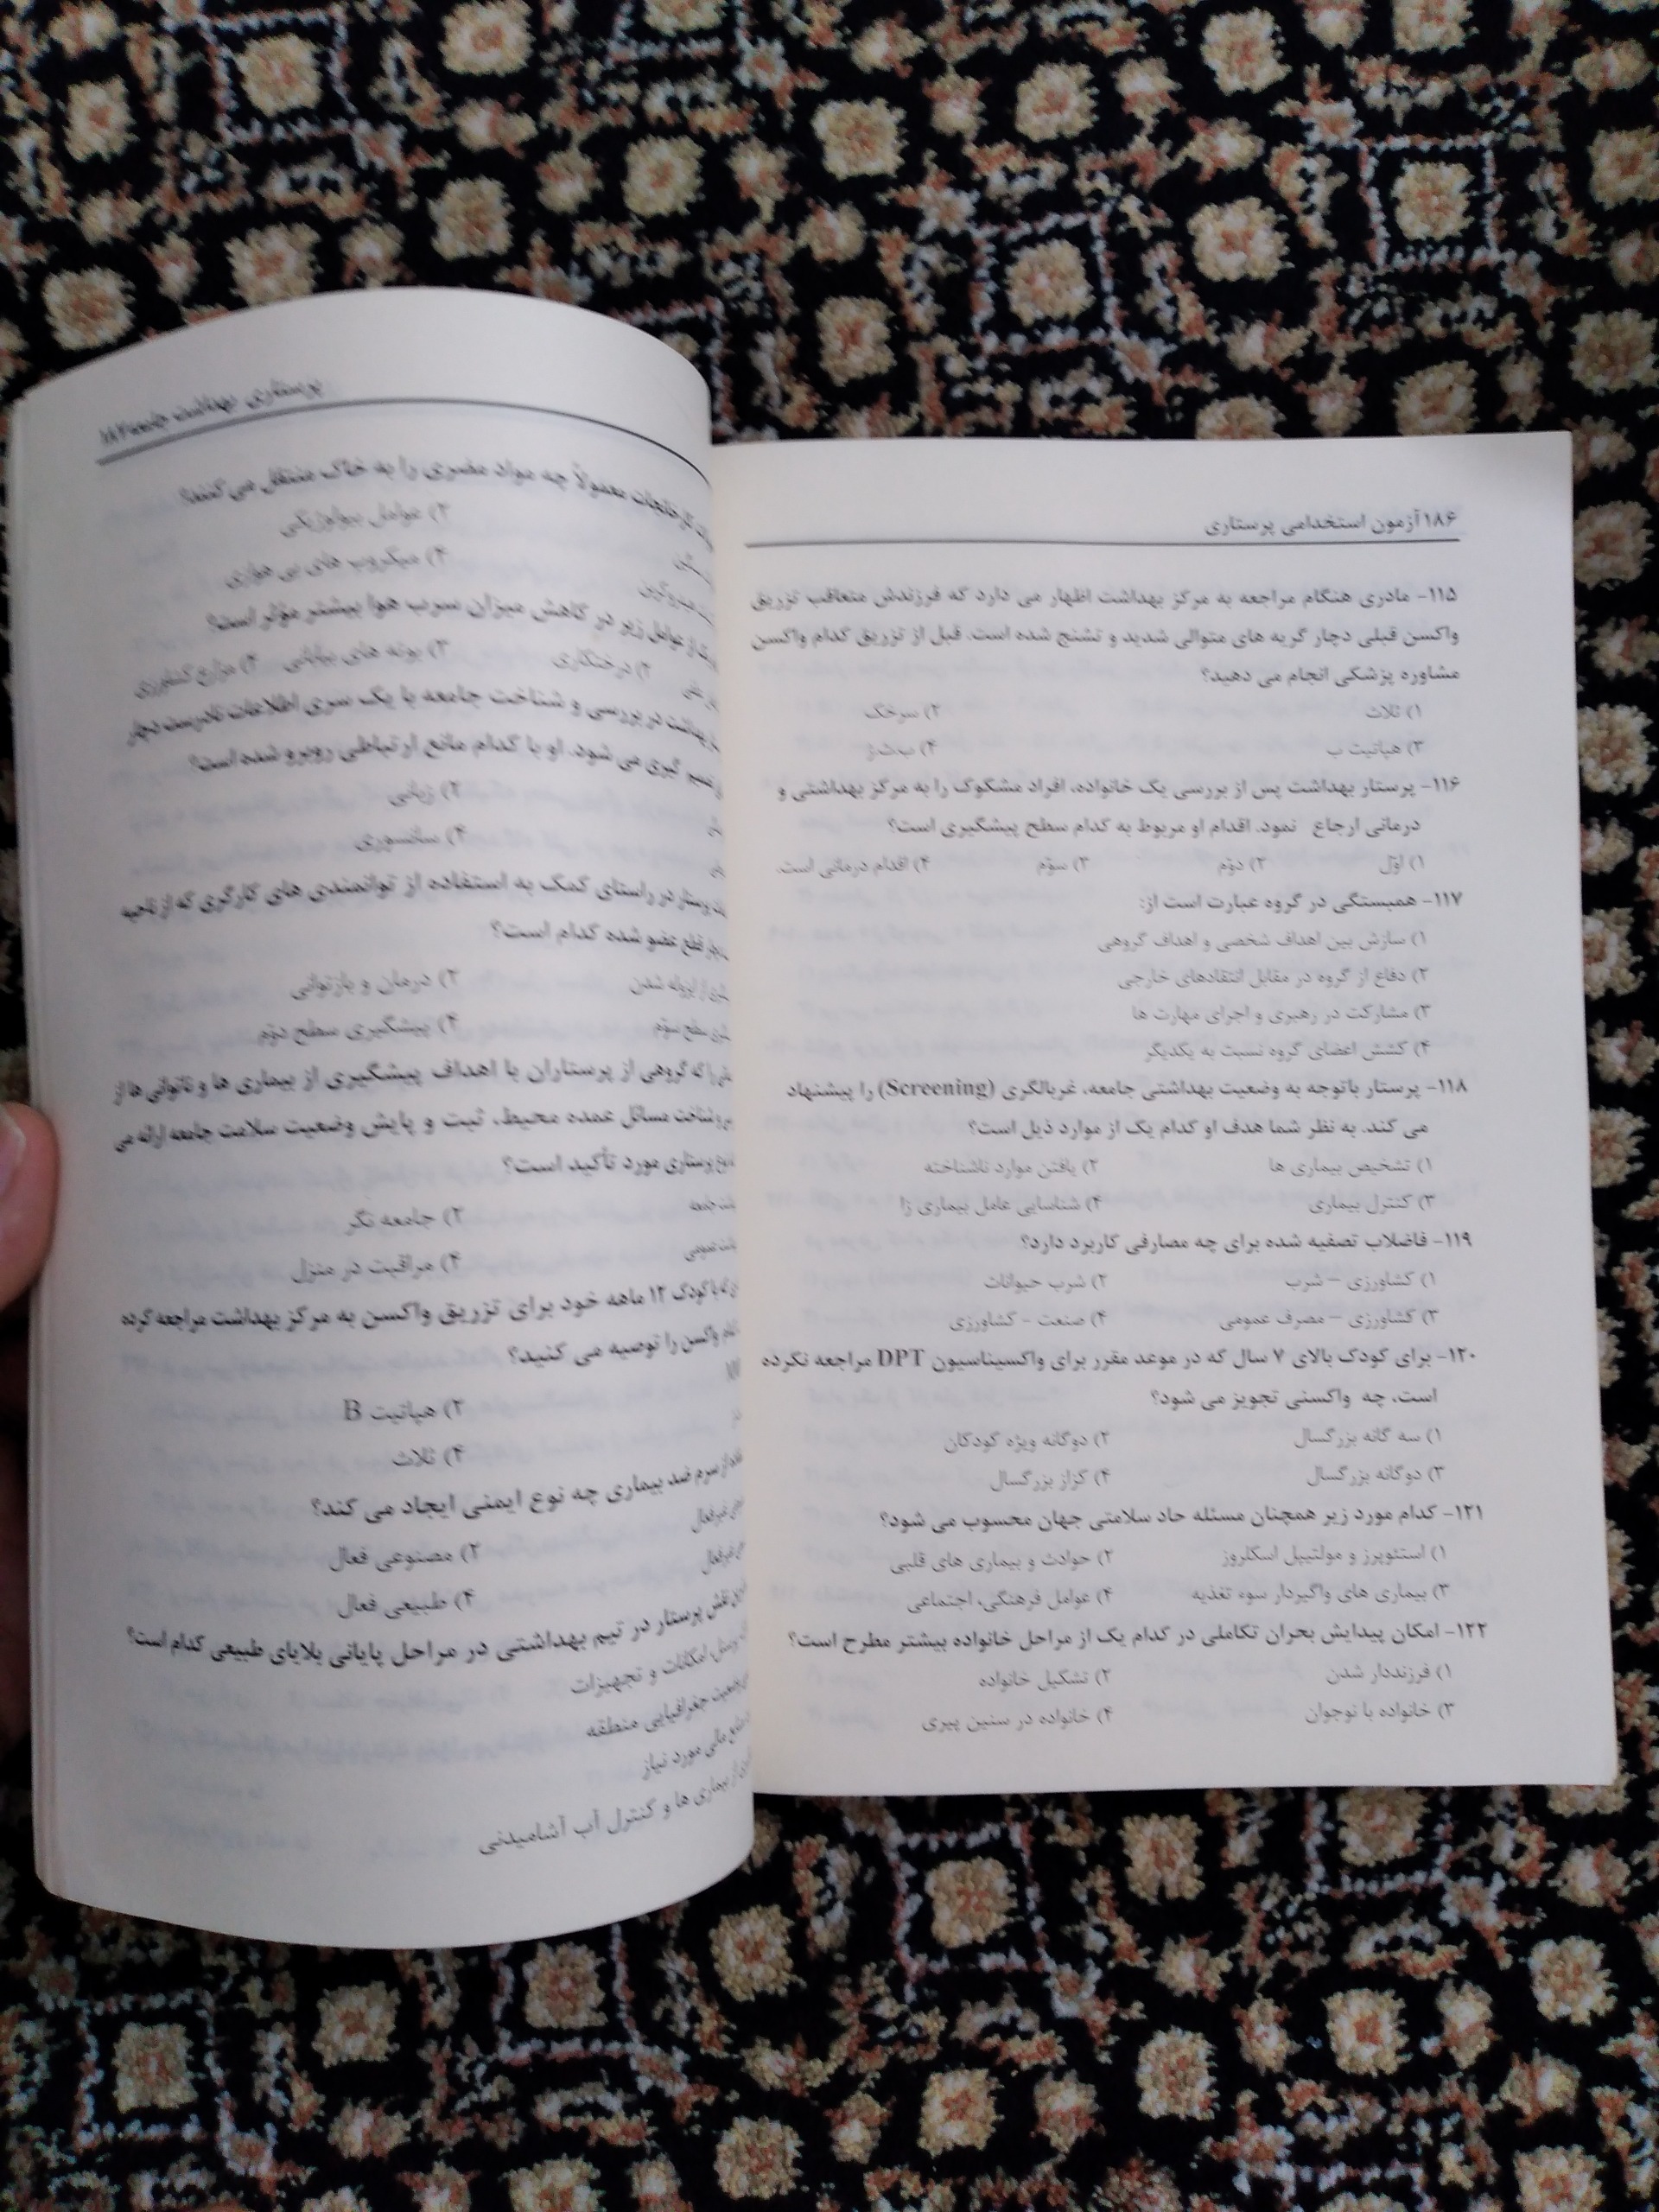 ۱۸۶ آزمون استخدامی پرستاری
۱۱۵- مادری هنگام مراجعه به مرکز بهداشت اظهار می دارد که فرزندش متعاقب تزریق
واکسن قبلی دچار گریه های متوالی شدید و تشنج شده است. قبل از تزریق کدام واکسن
مشاوره پزشکی انجام می دهید؟
۱) ثلاث ۲) سرخک
۳) هپاتیت ب ۴) ب.ث.ژ
۱۱۶- پرستار بهداشت پس از بررسی یک خانواده، افراد مشکوک را به مرکز بهداشتی و
درمانی ارجاع نمود. اقدام او مربوط به کدام سطح پیشگیری است؟
۱) اوّل ۲) دوّم ۳) سوّم ۴) اقدام درمانی است.
۱۱۷- همبستگی در گروه عبارت است از:
۱) سازش بین اهداف شخصی و اهداف گروهی
۲) دفاع از گروه در مقابل انتقادهای خارجی
۳) مشارکت در رهبری و اجرای مهارت ها
۴) کشش اعضای گروه نسبت به یکدیگر
۱۱۸- پرستار باتوجه به وضعیت بهداشتی جامعه، غربالگری (Screening) را پیشنهاد
می کند. به نظر شما هدف او کدام یک از موارد ذیل است؟
۱) تشخیص بیماری ها ۲) یافتن موارد ناشناخته
۳) کنترل بیماری ۴) شناسایی عامل بیماری زا
۱۱۹- فاضلاب تصفیه شده برای چه مصارفی کاربرد دارد؟
۱) کشاورزی – شرب ۲) شرب حیوانات
۳) کشاورزی – مصرف عمومی ۴) صنعت - کشاورزی
۱۲۰- برای کودک بالای ۷ سال که در موعد مقرر برای واکسیناسیون DPT مراجعه نکرده
است، چه واکسنی تجویز می شود؟
۱) سه گانه بزرگسال ۲) دوگانه ویژه کودکان
۳) دوگانه بزرگسال ۴) کزاز بزرگسال
۱۲۱- کدام مورد زیر همچنان مسئله حاد سلامتی جهان محسوب می شود؟
۱) استئوپرز و مولتیپل اسکلروز ۲) حوادث و بیماری های قلبی
۳) بیماری های واگیردار سوء تغذیه ۴) عوامل فرهنگی، اجتماعی
۱۲۲- امکان پیدایش بحران تکاملی در کدام یک از مراحل خانواده بیشتر مطرح است؟
۱) فرزنددار شدن ۲) تشکیل خانواده
۳) خانواده با نوجوان ۴) خانواده در سنین پیری
پرستاری بهداشت جامعه ۱۸۷
کارخانجات معمولاً چه مواد مضری را به خاک منتقل می کنند؟
۲) عوامل بیولوژیکی
۴) میکروب های بی هوازی
از عوامل زیر در کاهش میزان سرب هوا بیشتر مؤثر است؟
۲) درختکاری ۳) بوته های بیابانی ۴) مزارع کشاورزی
بهداشت در بررسی و شناخت جامعه با یک سری اطلاعات نادرست دچار
گیری می شود. او با کدام مانع ارتباطی روبرو شده است؟
۲) زبانی
۴) سانسوری
پرستار در راستای کمک به استفاده از توانمندی های کارگری که از ناحیه
قطع عضو شده کدام است؟
از ایزوله شدن ۲) درمان و بازتوانی
سطح سوّم ۴) پیشگیری سطح دوّم
را که گروهی از پرستاران با اهداف پیشگیری از بیماری ها و ناتوانی ها از
شناخت مسائل عمده محیط، ثبت و پایش وضعیت سلامت جامعه ارائه می
پرستاری مورد تأکید است؟
۲) جامعه نگر
۴) مراقبت در منزل
با کودک ۱۲ ماهه خود برای تزریق واکسن به مرکز بهداشت مراجعه کرده
واکسن را توصیه می کنید؟
۲) هپاتیت B
۴) ثلاث
از سرم ضد بیماری چه نوع ایمنی ایجاد می کند؟
غیرفعال ۲) مصنوعی فعال
غیرفعال ۴) طبیعی فعال
نقش پرستار در تیم بهداشتی در مراحل پایانی بلایای طبیعی کدام است؟
پرسنل، امکانات و تجهیزات
وضعیت جغرافیایی منطقه
منابع ملی مورد نیاز
از بیماری ها و کنترل آب آشامیدنی